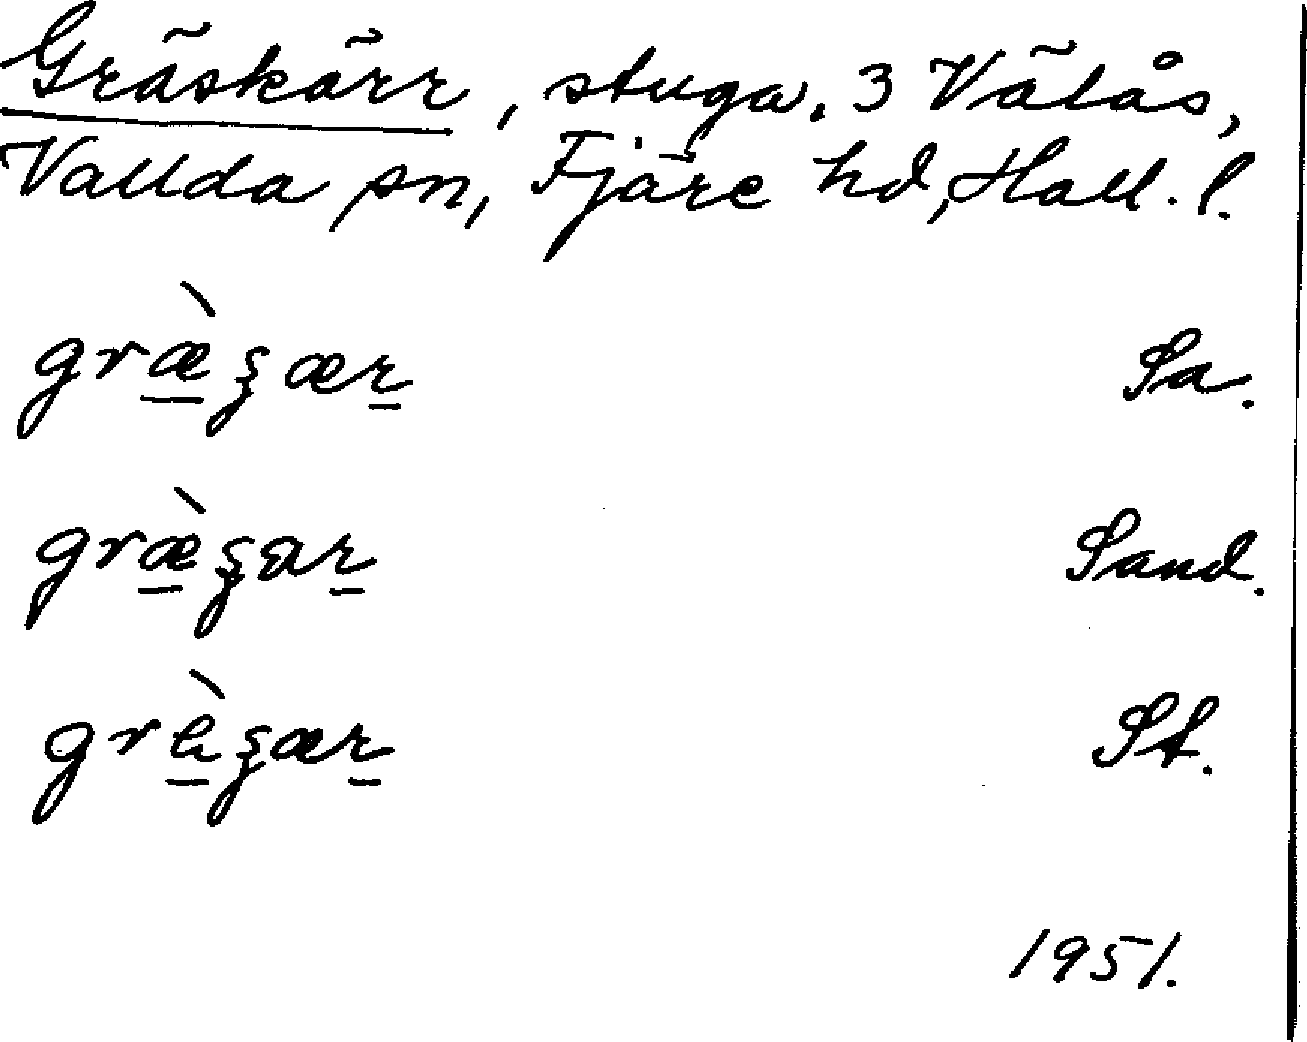 Gräskärr, stuga. 3 Välås,
Vallda sn, Fjäre hd, Hall. l.
græ̠̀ʂær̠ Sa.
græ̠̀ʂar̠ Sand.
grɛ̠̀ʂær̠ St.
1951.